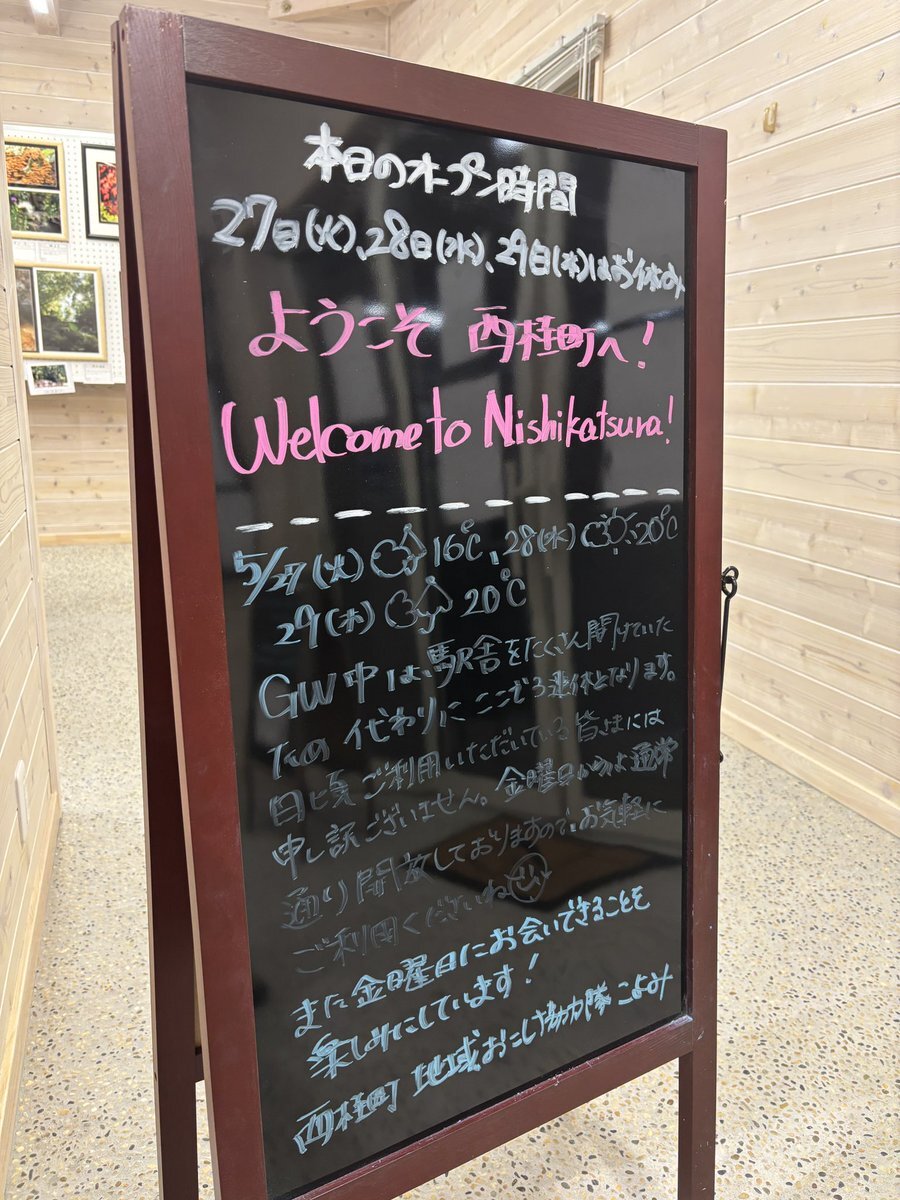 本日のオープン時間
27日(火)、28日(水)、29日(木)はお休み
ようこそ 西桂町へ!
Welcome to Nishikatsura!
5/27(火) 16℃、28(水) 20℃
29(木) 20℃
GW中は、駅舎をたくさん開けていた
ための代わりにここぞろ連休となります。
日頃ご利用いただいている皆さまには
申し訳ございません。金曜日からは通常
通り開放しておりますので、お気軽に
ご利用くださいね
また金曜日にお会いできることを
楽しみにしています!
西桂町 地域おこし協力隊 こよみ